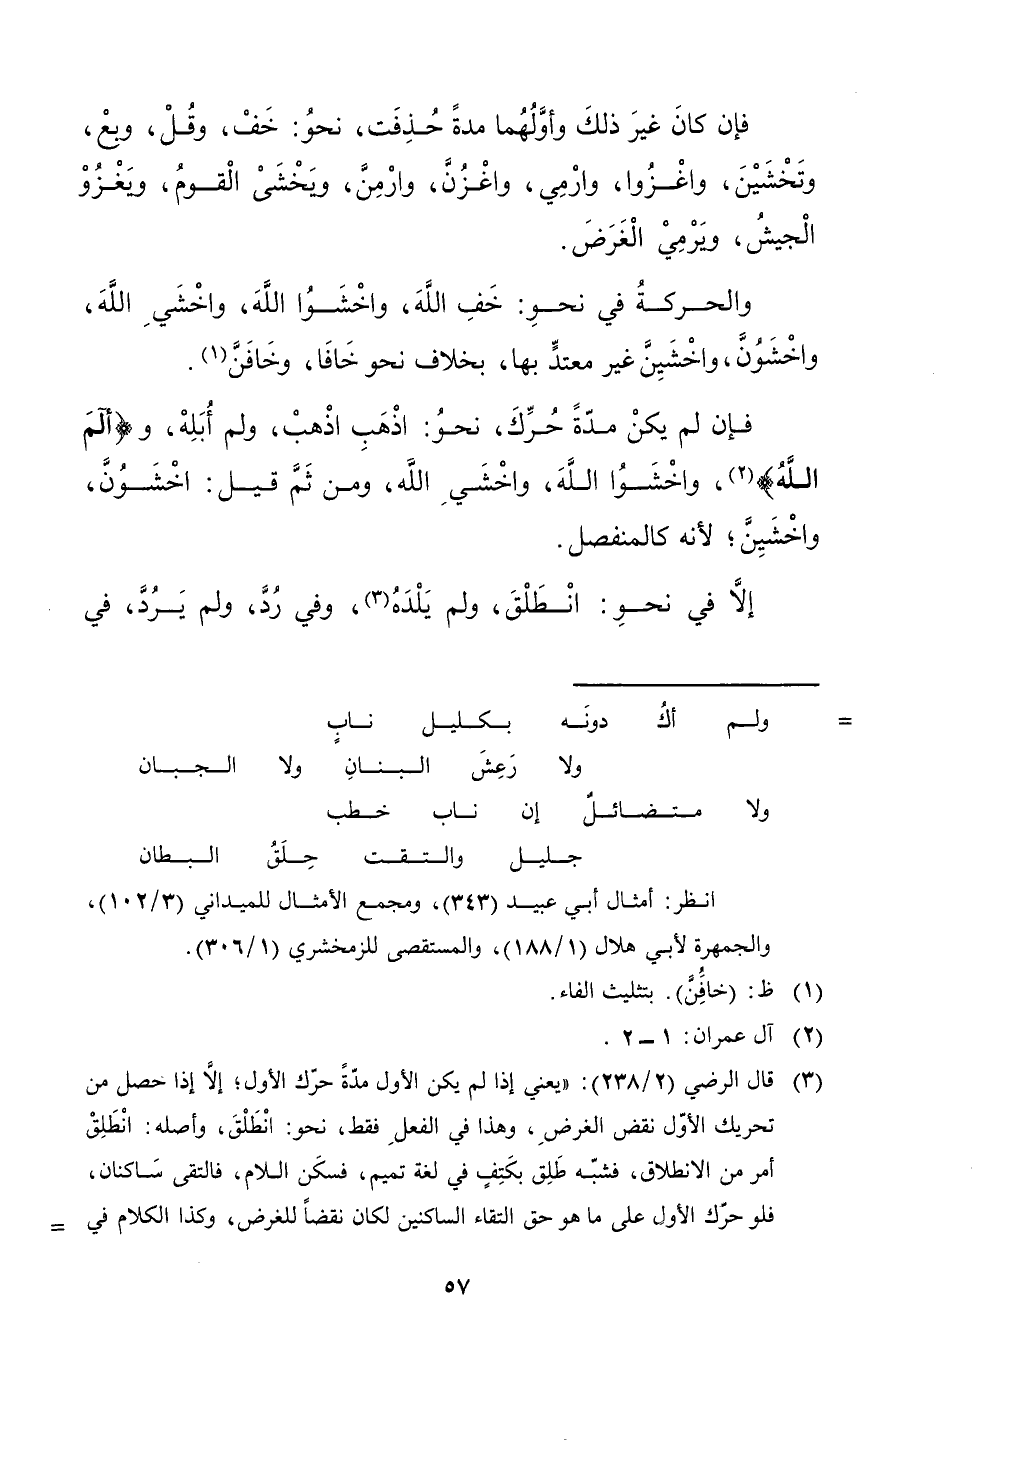 فإن كانَ غيرَ ذلكَ وأوَّلُهُما مدةً حُذِفَت، نحوُ: خَفْ، وقُلْ، وبِعْ،
وتَخْشَيْنَ، واغْزُوا، وارْمِي، واغْزُنَّ، وارْمِنَّ، ويَخْشَىْ الْقومُ، ويَغْزُوْ
الْجيشُ، ويَرْمِيْ الْغَرَضَ.
والحركةُ في نحوِ: خَفِ اللَّهَ، واخْشَوُا اللَّهَ، واخْشَيِ اللَّهَ،
واخْشَوُنَّ، واخْشَيِنَّ غير معتدٍّ بها، بخلاف نحو خَافَا، وخَافَنَّ(١).
فإن لم يكنْ مدّةً حُرِّكَ، نحوُ: اذْهَبِ اذْهبْ، ولم أُبَلِهْ، و﴿ألَمَ
اللَّهُ﴾(٢)، واخْشَوُا اللَّهَ، واخْشَيِ اللَّه، ومن ثَمَّ قيل: اخْشَوُنَّ،
واخْشَيِنَّ؛ لأنه كالمنفصل.
إلَّا في نحوِ: انْطَلْقَ، ولم يَلْدَهُ(٣)، وفي رُدَّ، ولم يَرُدَّ، في
= ولم أكُ دونَه بكليل نابٍ
ولا رَعِشَ البنانِ ولا الجبان
ولا متضائلٌ إن ناب خطب
جليل والتقت حِلَقُ البطان
انظر: أمثال أبي عبيد (٣٤٣)، ومجمع الأمثال للميداني (١٠٢/٣)،
والجمهرة لأبي هلال (١٨٨/١)، والمستقصى للزمخشري (٣٠٦/١).
(١) ظ: (خافَُِنَّ). بتثليث الفاء.
(٢) آل عمران: ١ ــ ٢ .
(٣) قال الرضي (٢٣٨/٢): «يعني إذا لم يكن الأول مدّةً حرّك الأول؛ إلَّا إذا حصل من
تحريك الأوّل نقض الغرضِ، وهذا في الفعلِ فقط، نحو: انْطَلْقَ، وأصله: انْطَلِقْ
أمر من الانطلاق، فشبّه طَلِق بكَتِفٍ في لغة تميم، فسكّن اللام، فالتقى سَاكنان،
فلو حرّك الأول على ما هو حق التقاء الساكنين لكان نقضاً للغرض، وكذا الكلام في =
٥٧